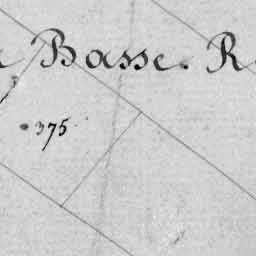 Basse.
375